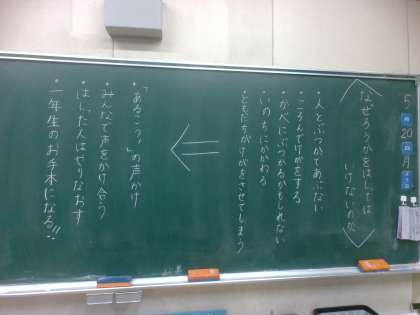 5
月
20
日
月
なぜろうかをはしっては
いけないのか
・人とぶつかってあぶない
・ころんでけがをする
・かべにぶつかるかもしれない
・いのちにかかわる
・ともだちがけがをさせてしまう
・「あるこう」の声かけ
・みんなで声をかけ合う
・はしった人はやりなおす
・一年生のお手本になる!!